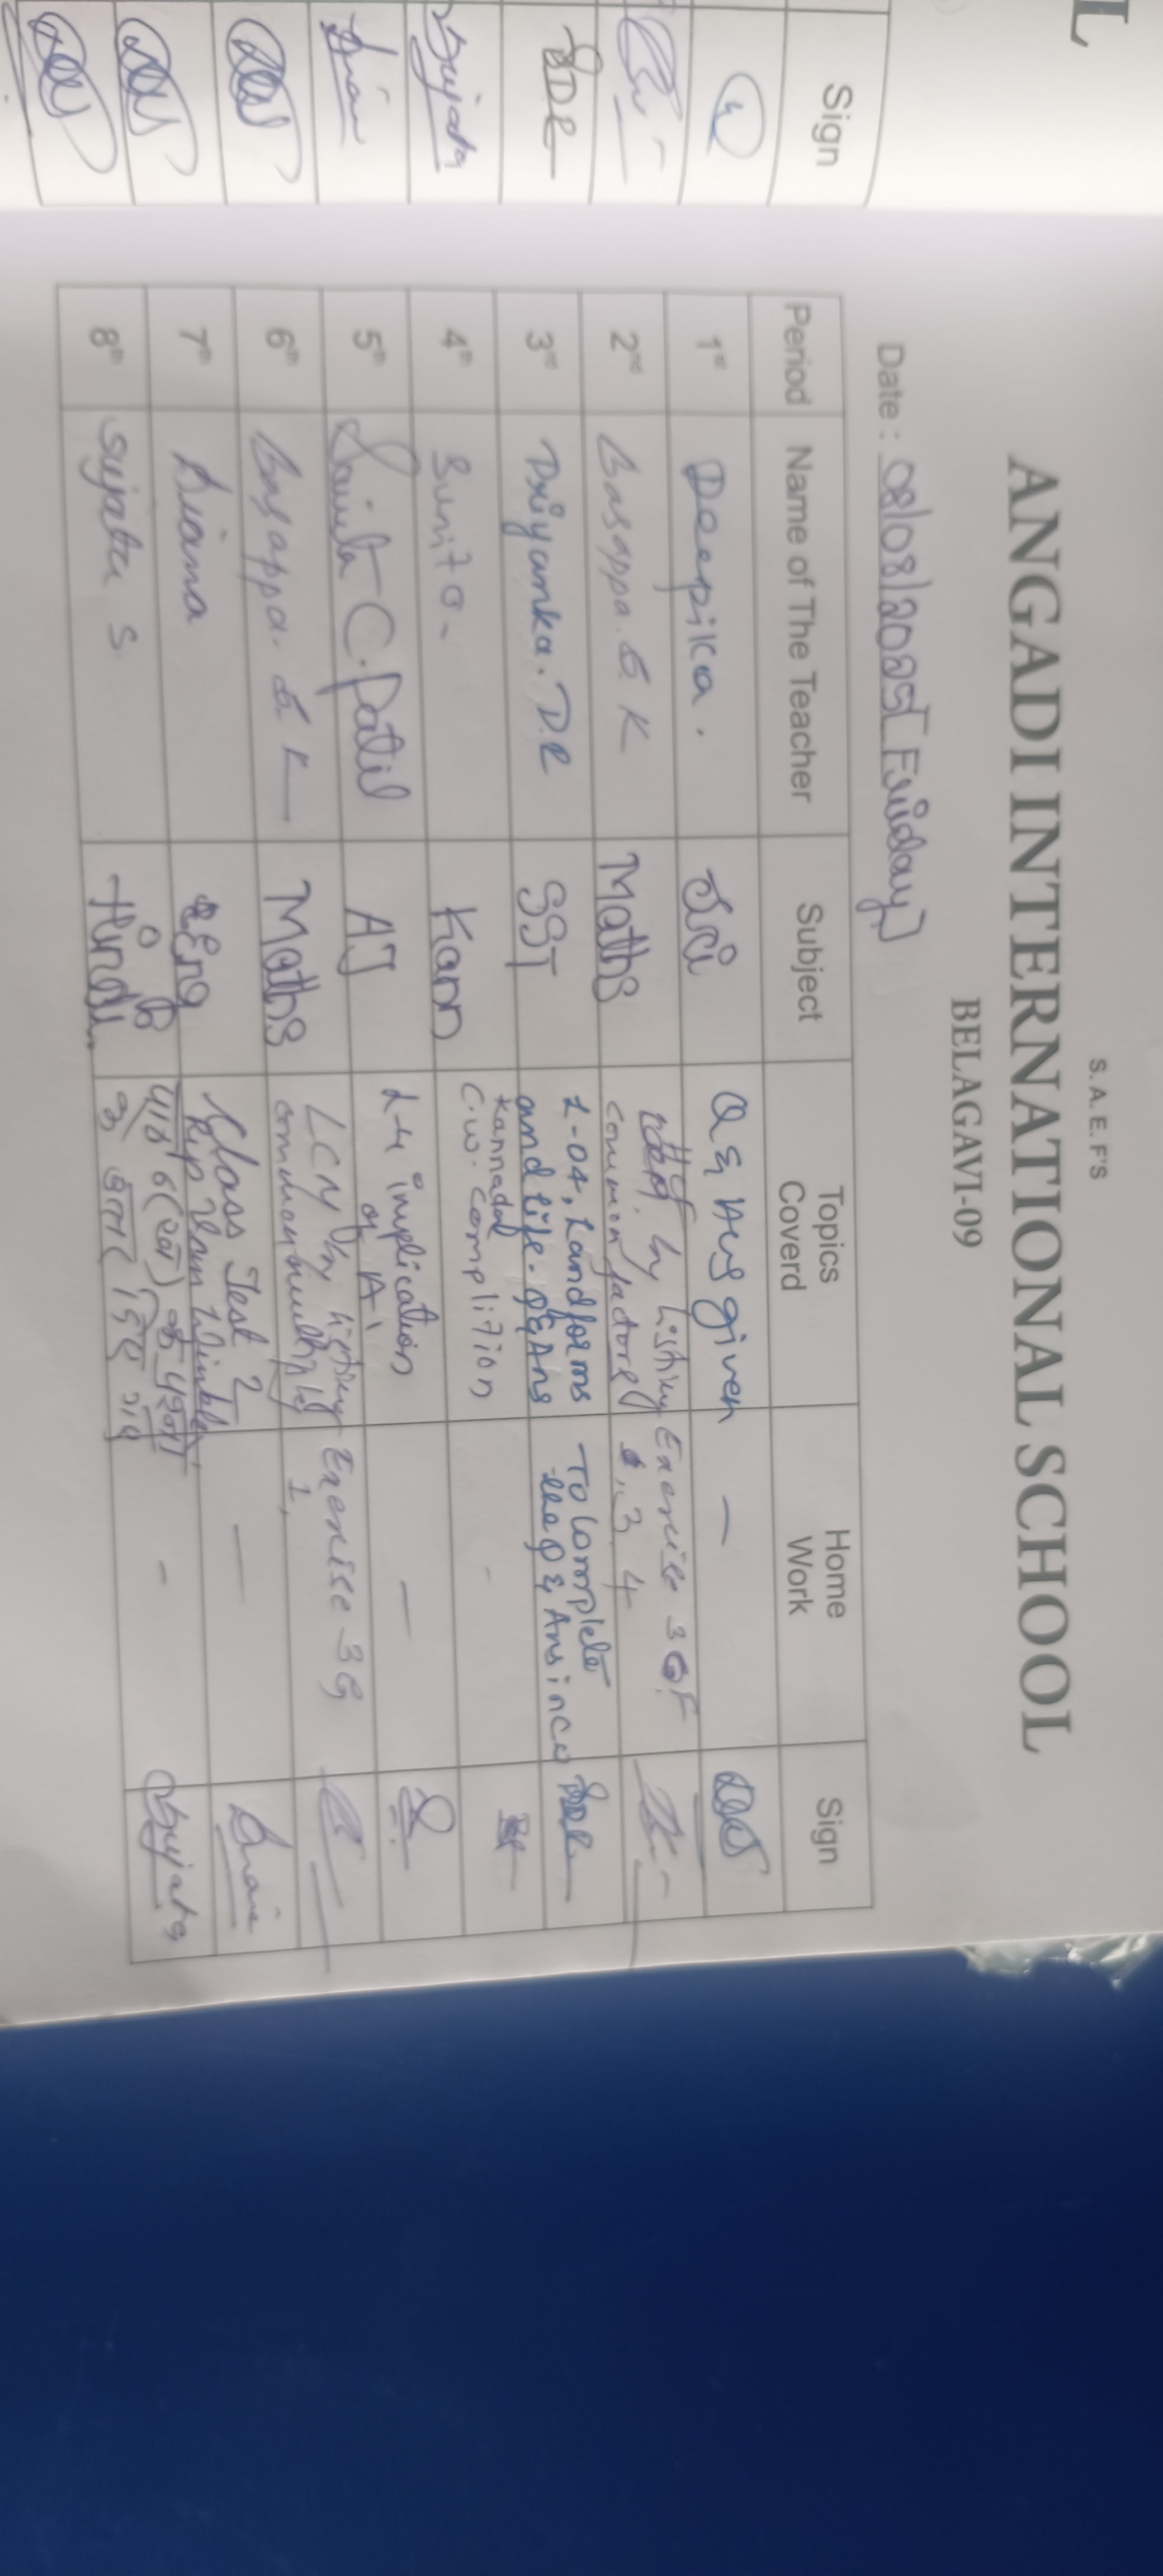 L
Sign
SDR
Sujata
S. A. E. F'S
ANGADI INTERNATIONAL SCHOOL
BELAGAVI-09
Date : 08/08/2025[Friday]
Period Name of The Teacher Subject Topics Coverd Home Work Sign
1st Deepika. Sci Q & Aus given —
2nd Basappa. G K Maths by listing common factors Exercise 3 F 3, 4
3rd Priyanka. D.R SST L-04, Landforms and life. Q&Ans To Complete the Q & Ans in CW SDR
4th Sunita- Kann Kannada C.W. complition -
5th Savita C. Patil AI L-4 implication of AI —
6th Basappa. G K Maths LCM by listing common multiples Exercise 3G 1,
7th Diana Eng Class Test 2 Rip Van Winkle —
8th Sujata S. Hindi पाठ 6 -
Sujata